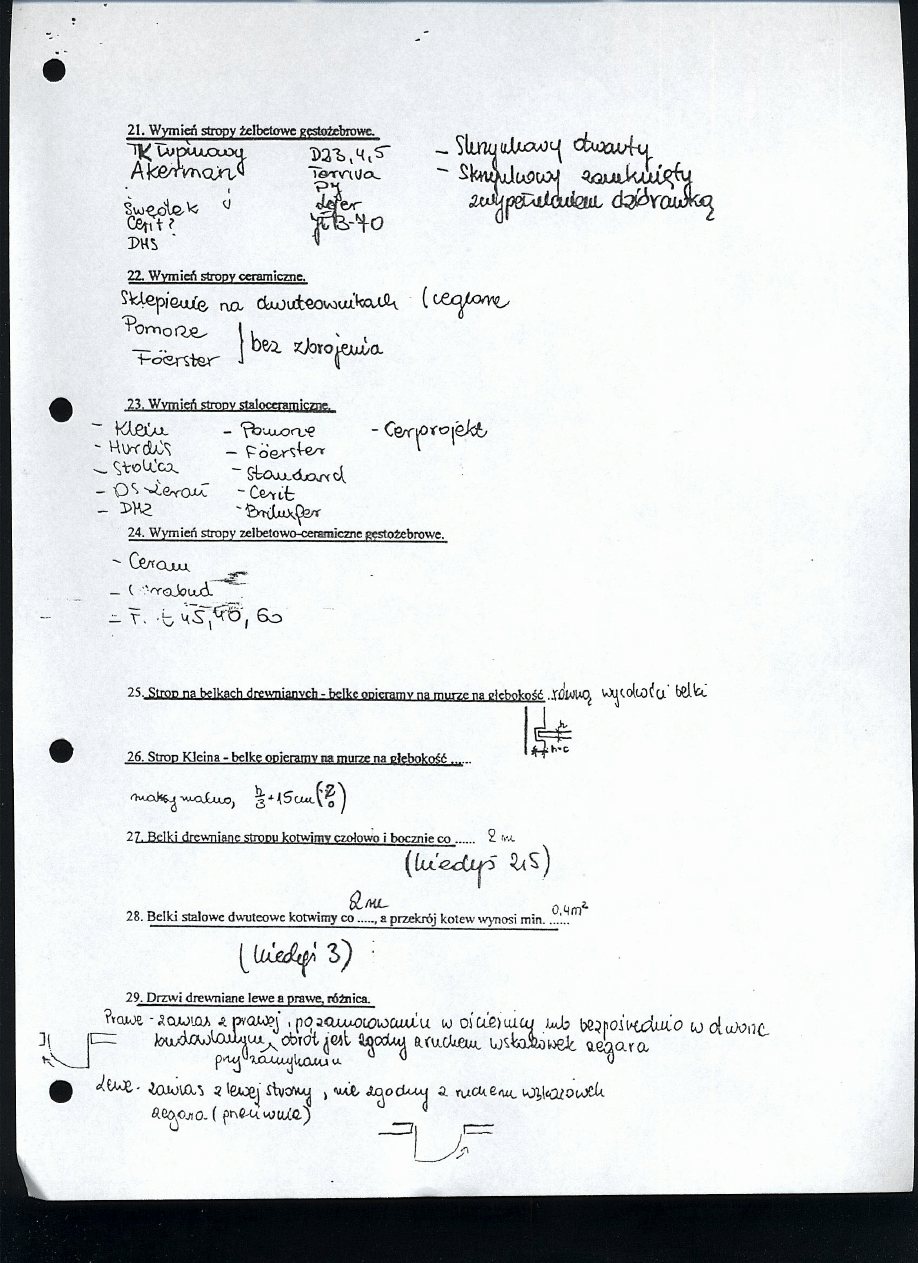 21. Wymień stropy żelbetowe gęstożebrowe.
TK Łupinowy
Akerman
Swędek
Cerit?
DMS
D23,4,5
Teriva
Py
JB-70
– Skrzynkowy otwarty
– Skrzynkowy zamknięty
z wypełnieniem dziórawką
22. Wymień stropy ceramiczne.
Sklepienie na dwuteownikach (ceglane
Pomorze
Föerster
bez zbrojenia
23. Wymień stropy staloceramiczne.
– Klein – Pomorze – Cerprojekt
– Hurdis – Föerster
– Stolica – Standard
– DS Żerań – Cerit
– DMZ
24. Wymień stropy zelbetowo-ceramiczne gęstożebrowe.
– Ceram
45, 40, 60
25. Strop na belkach drewnianych - belkę opieramy na murze na głębokość .. równą wysokości belki
h
h=c
26. Strop Kleina - belkę opieramy na murze na głębokość ......
maksymalno, h/3 + 15cm
27. Belki drewniane stropu kotwimy czołowo i bocznie co ...... 2 m
(kiedyś 2,5)
28. Belki stalowe dwuteowe kotwimy co ....., a przekrój kotew wynosi min. ......
2m
0,4m²
(kiedyś 3)
29. Drzwi drewniane lewe a prawe, różnica.
Prawe - zawias z prawej, po zamocowaniu w ościeżnicy lub bezpośrednio w otworze
budowlanym, obrót jest zgodny z ruchem wskazówek zegara
przy zamykaniu
Lewe - zawias z lewej strony, nie zgodny z ruchem wskazówek
zegara (przeciwnie)